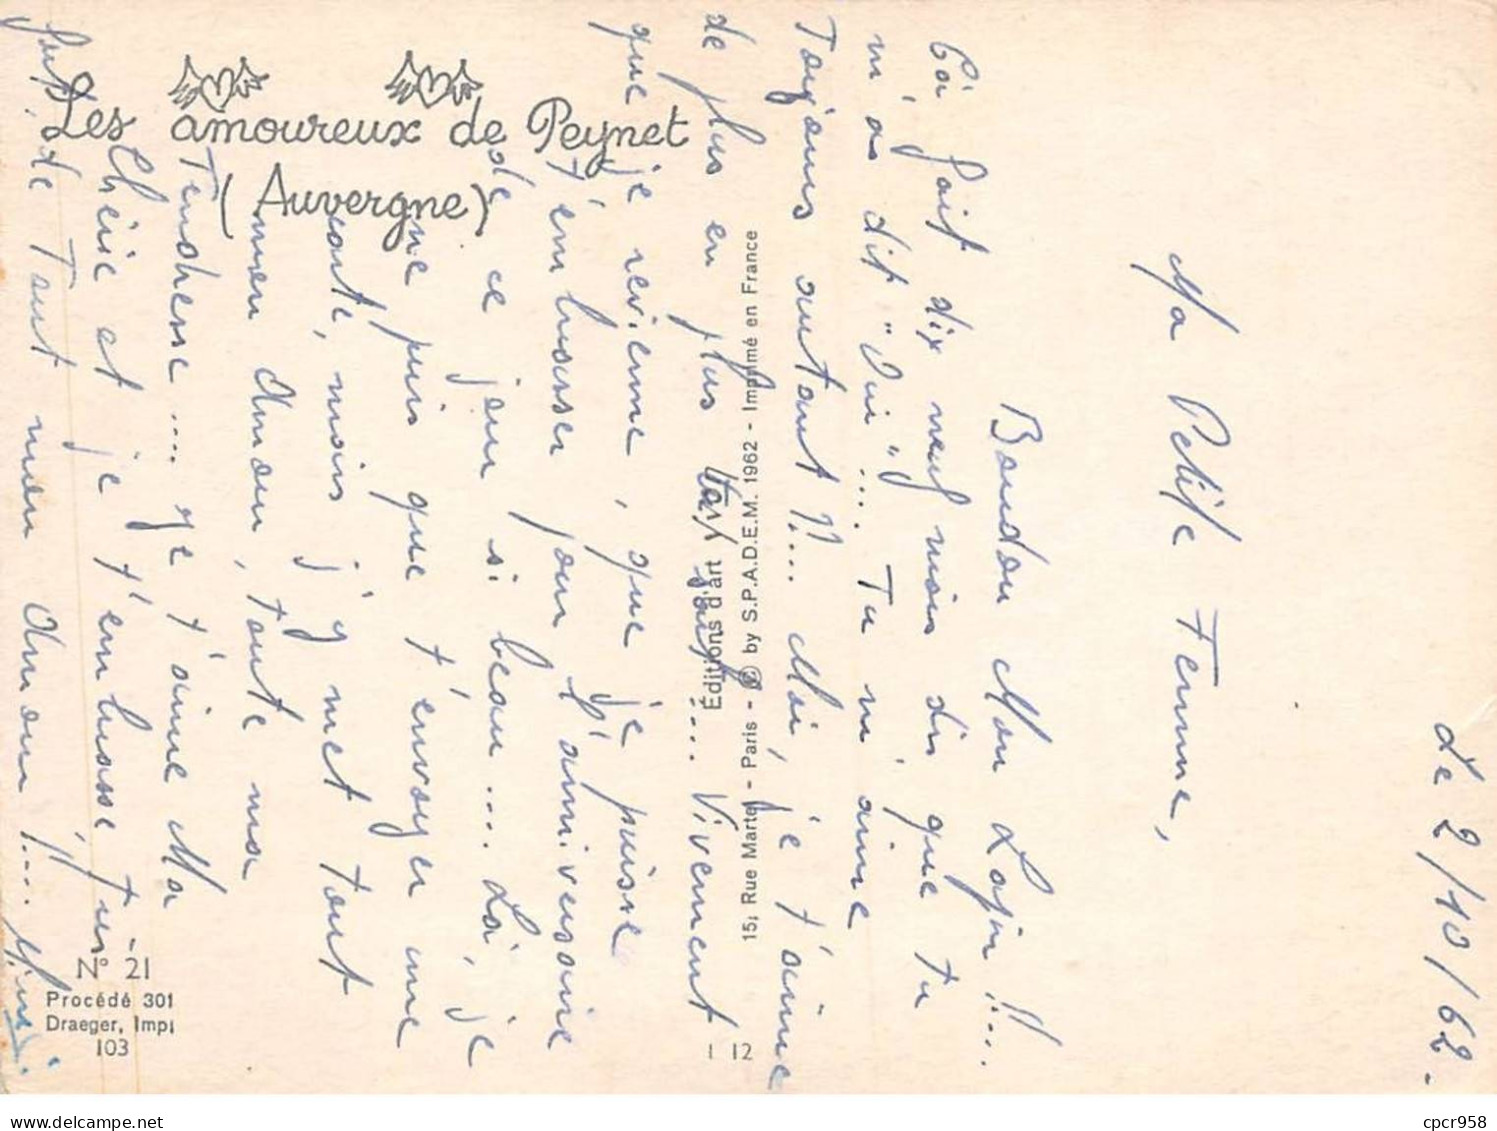 Les amoureux de Peynet
(Auvergne)
Le 2/10/62.
Ma Petite Femme,
Bonsoir Mon Lapin !!...
Cà fait dix neuf mois dis que tu
m'as dit "Oui".... Tu m'aime
Toujours autant ?... Moi, je t'aime
de plus en plus fort ... Vivement
que je revienne, que je puisse
t'embrasser pour l'anniversaire
de ce jour si beau... Là, je
ne puis que t'envoyer une
carte, mais j'y met tout
mon Amour, toute ma
Tendresse.... Je t'aime Ma
Chérie et je t'embrasse très
fort, de Tout mon Amour !....
Editions d'art
15, Rue Martel - Paris - © by S.P.A.D.E.M. 1962 - Imprimé en France
N° 21
Procédé 301
Draeger, Imp
103
1 12
cpcr958